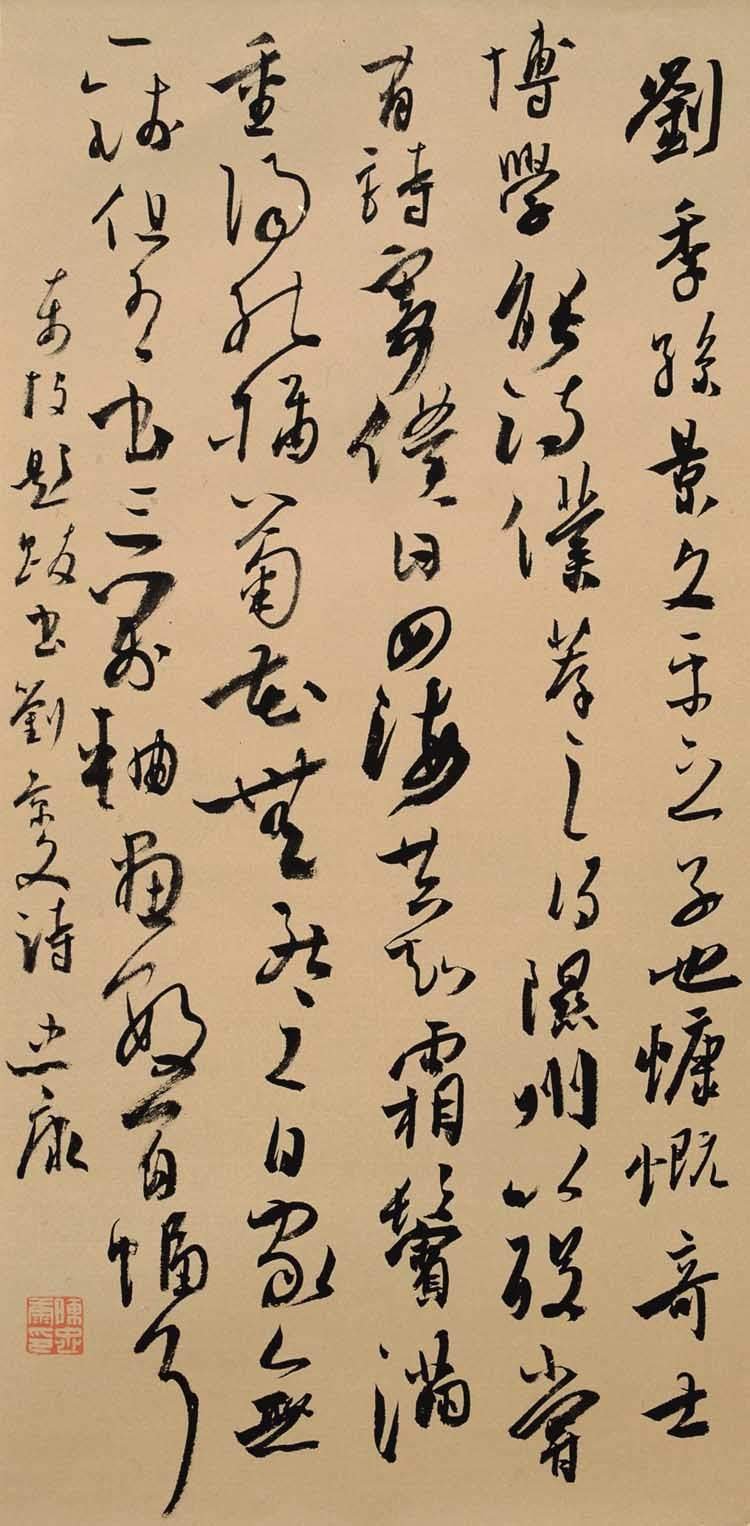 劉季孫景文平之子也慷慨奇士
博學能詩僕薦之得隰州以歿嘗
有詩寄僕曰四海共知霜鬢滿
重陽插菊花無死之日家無
一錢但有書三萬軸畫數百幅耳
東坡題跋書劉景文詩 忠康
陳忠康印